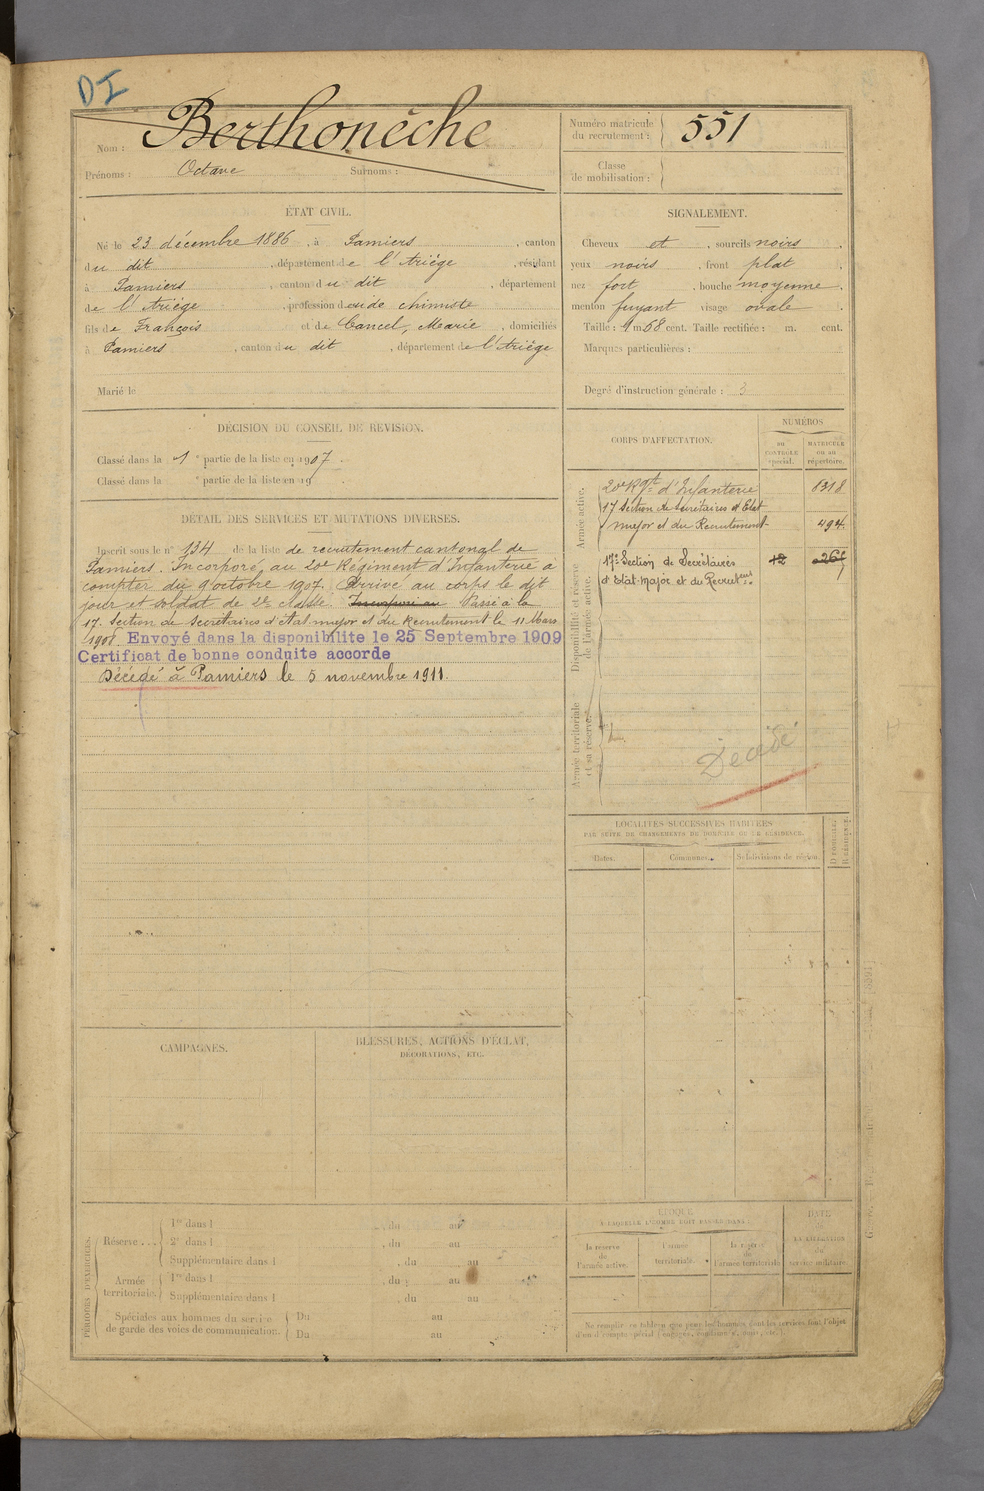 DI
Nom : Berthonèche
Prénoms : Octave Surnoms :
Numéro matricule
du recrutement : 551
Classe
de mobilisation :
ÉTAT CIVIL.
Né le 23 décembre 1886, à Pamiers, canton
du dit, département de l'Ariège, résidant
à Pamiers, canton du dit, département
de l'Ariège, profession d'aide chimiste
fils de François et de Cancel, Marie, domiciliés
à Pamiers, canton du dit, département de l'Ariège
Marié le
SIGNALEMENT.
Cheveux et sourcils noirs
yeux noirs, front plat
nez fort, bouche moyenne
menton fuyant visage ovale
Taille : 1 m. 68 cent. Taille rectifiée : m. cent.
Marques particulières :
Degré d'instruction générale : 3
DÉCISION DU CONSEIL DE RÉVISION.
Classé dans la 1e partie de la liste en 1907.
Classé dans la e partie de la liste en 19
DÉTAIL DES SERVICES ET MUTATIONS DIVERSES.
Inscrit sous le n° 134 de la liste de recrutement cantonal de
Pamiers. Incorporé au 20e Régiment d'Infanterie a
compter du 9 octobre 1907. Arrivé au corps le dit
jour et soldat de 2e classe. Incorporé au Passé à la
17. Section de Secrétaires d'état major et du Recrutement le 11 Mars
1908. Envoyé dans la disponibilite le 25 Septembre 1909
Certificat de bonne conduite accorde
Décédé à Pamiers le 5 novembre 1911.
CORPS D'AFFECTATION.
NUMÉROS
au contrôle spécial.
matricule ou au répertoire.
Armée active.
20e Rgt d'Infanterie 6318
17 Section de Secrétaires d'Etat
major et du Recrutement 494
Disponibilité et réserve de l'armée active.
17e Section de Secrétaires 12 266
d'Etat-Major et du Recrutent
Armée territoriale et sa réserve.
Décédé
LOCALITÉS SUCCESSIVES HABITÉES
PAR SUITE DE CHANGEMENTS DE DOMICILE OU DE RÉSIDENCE.
Dates. Communes. Subdivisions de région.
CAMPAGNES.
BLESSURES, ACTIONS D'ÉCLAT,
DÉCORATIONS, ETC.
PÉRIODES D'EXERCICES.
Réserve . . . 1re dans l , du au
2e dans l , du au
Supplémentaire dans l , du au
Armée territoriale. 1re dans l , du au
Supplémentaire dans l , du au
Spéciales aux hommes du service
de garde des voies de communication. Du au
Du au
ÉPOQUE
À LAQUELLE L'HOMME DOIT PASSER DANS :
la réserve de l'armée active.
l'armée territoriale.
la réserve de l'armée territoriale
DATE
DE LA LIBÉRATION
du service militaire.
Ne remplir ce tableau que pour les hommes dont les services font l'objet
d'un décompte spécial (engagés, condamnés, omis, etc.)